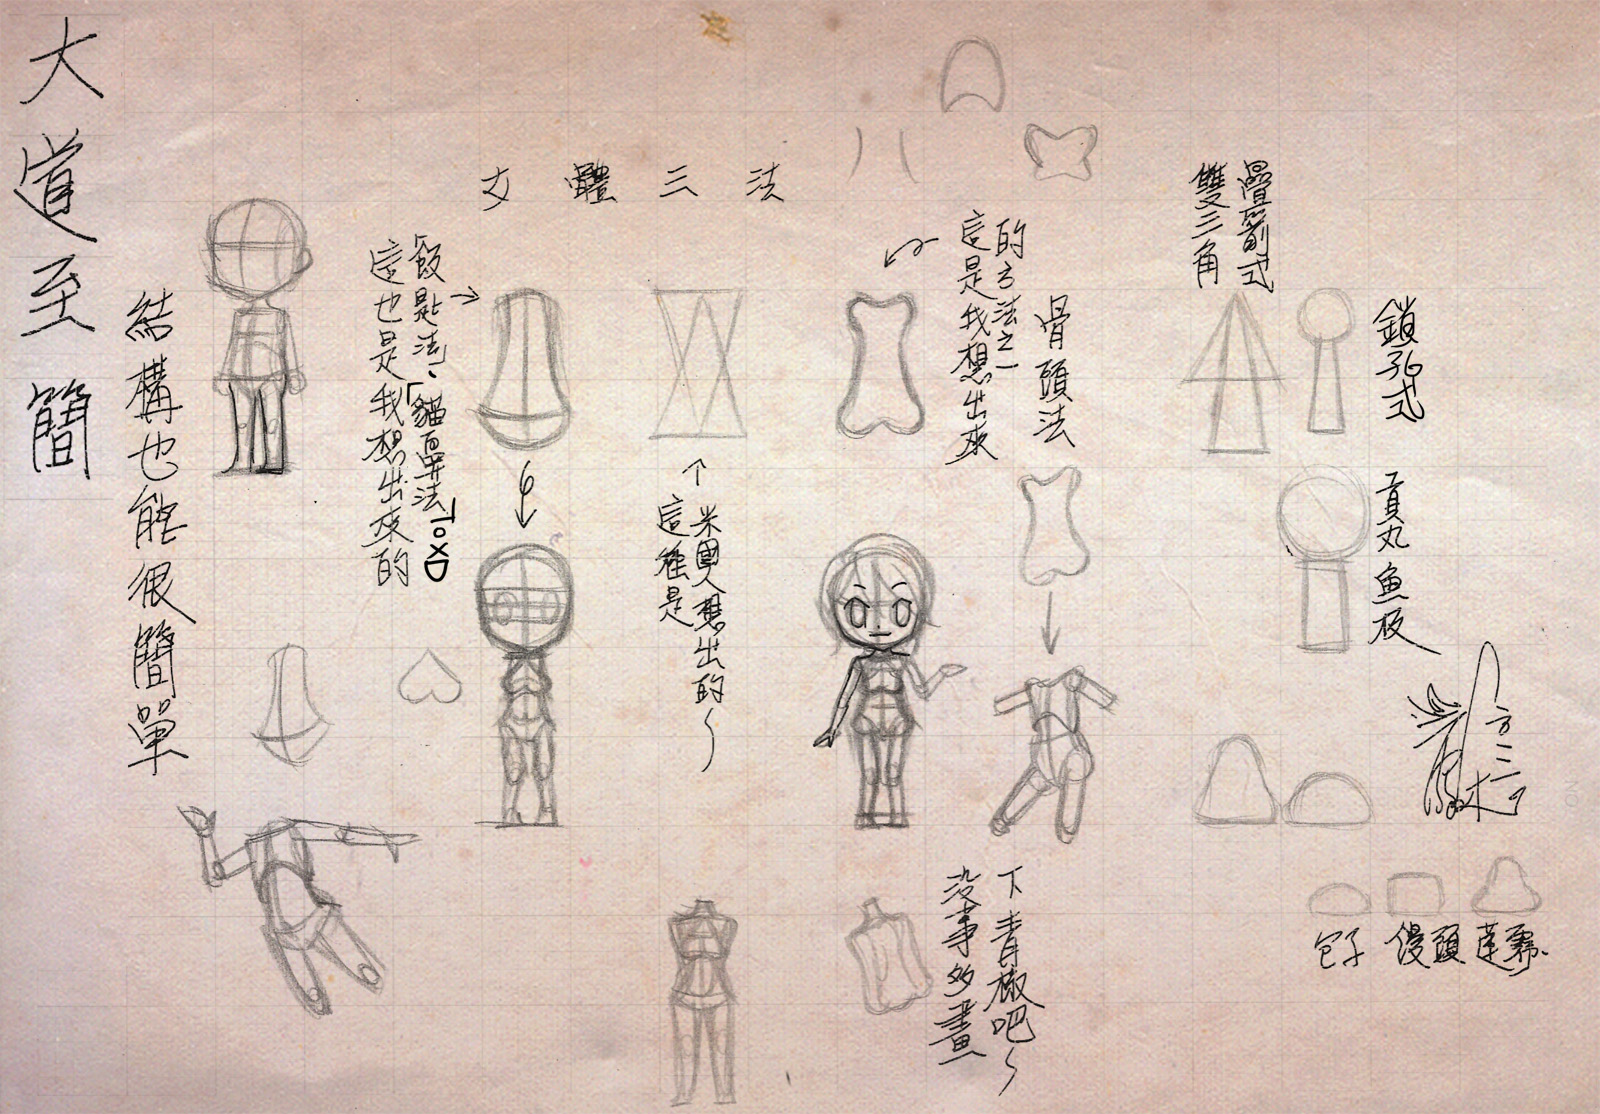 大道至簡
結構也能很簡單
女體三法
飯匙法、「貓鼻法」
這也是我想出來的
ToXD
這種是
米國人想出的~
這是我想出來
的方法之一
骨頭法
疊箭式
雙三角
鎖孔式
貢丸魚板
沒事多畫
下青椒吧~
包子
饅頭